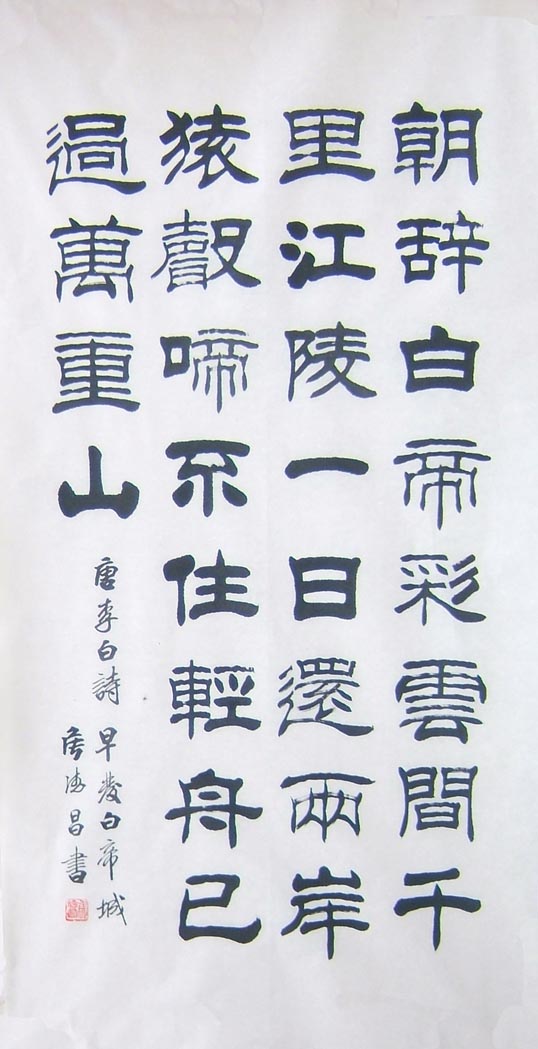 朝辞白帝彩雲間千
里江陵一日還兩岸
猿聲啼不住輕舟已
過萬重山
唐李白詩 早發白帝城
侯德昌書